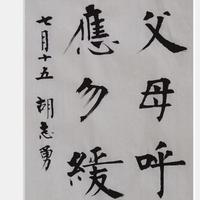 父母呼
應勿緩
七月十五 胡志勇